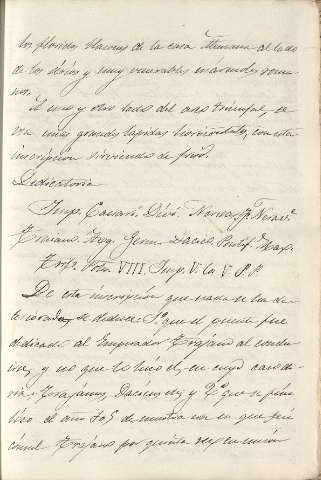 los floridos blasones de la casa Alemana al lado
de los docios y muy venerables mármoles roma-
nos.
A uno y otro lado del arco triunfal, se
ven unas grandes lapidas horizontales, con esta
inscripcion sirviendo de friso.
Dedicatoria
Imp. Caesari. Divi. Nervae. F. Nervae
Traiano. Aug. Germ. Dacico. Pontif. Max.
Trib. Potes. VIII. Imp. V. Cos V. P. P.
De esta inscripcion que nada se ha de-
teriorado, se deduce: 1º que el puente fue
dedicado al Emperador Trajano al conclu-
irse, y no que lo hizo el, en cuyo caso di-
ria: Trajanus, Dacicus etc; y 2º que se fina-
lizó el año 105 de nuestra era en que fué
cónsul Trajano por quinta vez en union